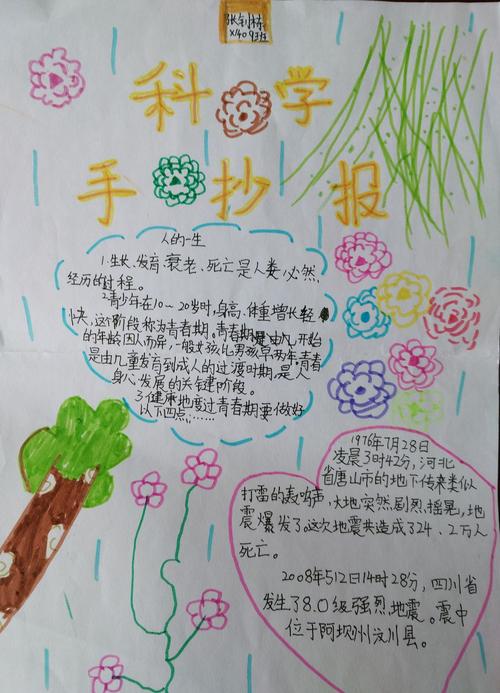 张钊栋
X1409 3班
科学
手抄报
人的一生
1.生长、发育、衰老、死亡是人类必然
经历的过程。
2.青少年在10~20岁时,身高、体重增长轻
快,这个阶段称为青春期。青春期是由儿开始
的年龄因人而异,一般女孩比男孩早两年。青春
是由儿童发育到成人的过渡时期,是人
身心发展的关键阶段。
3.健康地度过青春期要做好
以下四点:……
1976年7月28日
凌晨3时42分,河北
省唐山市的地下传来类似
打雷的轰鸣声,大地突然剧烈摇晃,地
震爆发了。这次地震共造成324.2万人
死亡。
2008年512日14时28分,四川省
发生了8.0级强烈地震。震中
位于阿坝州汶川县。